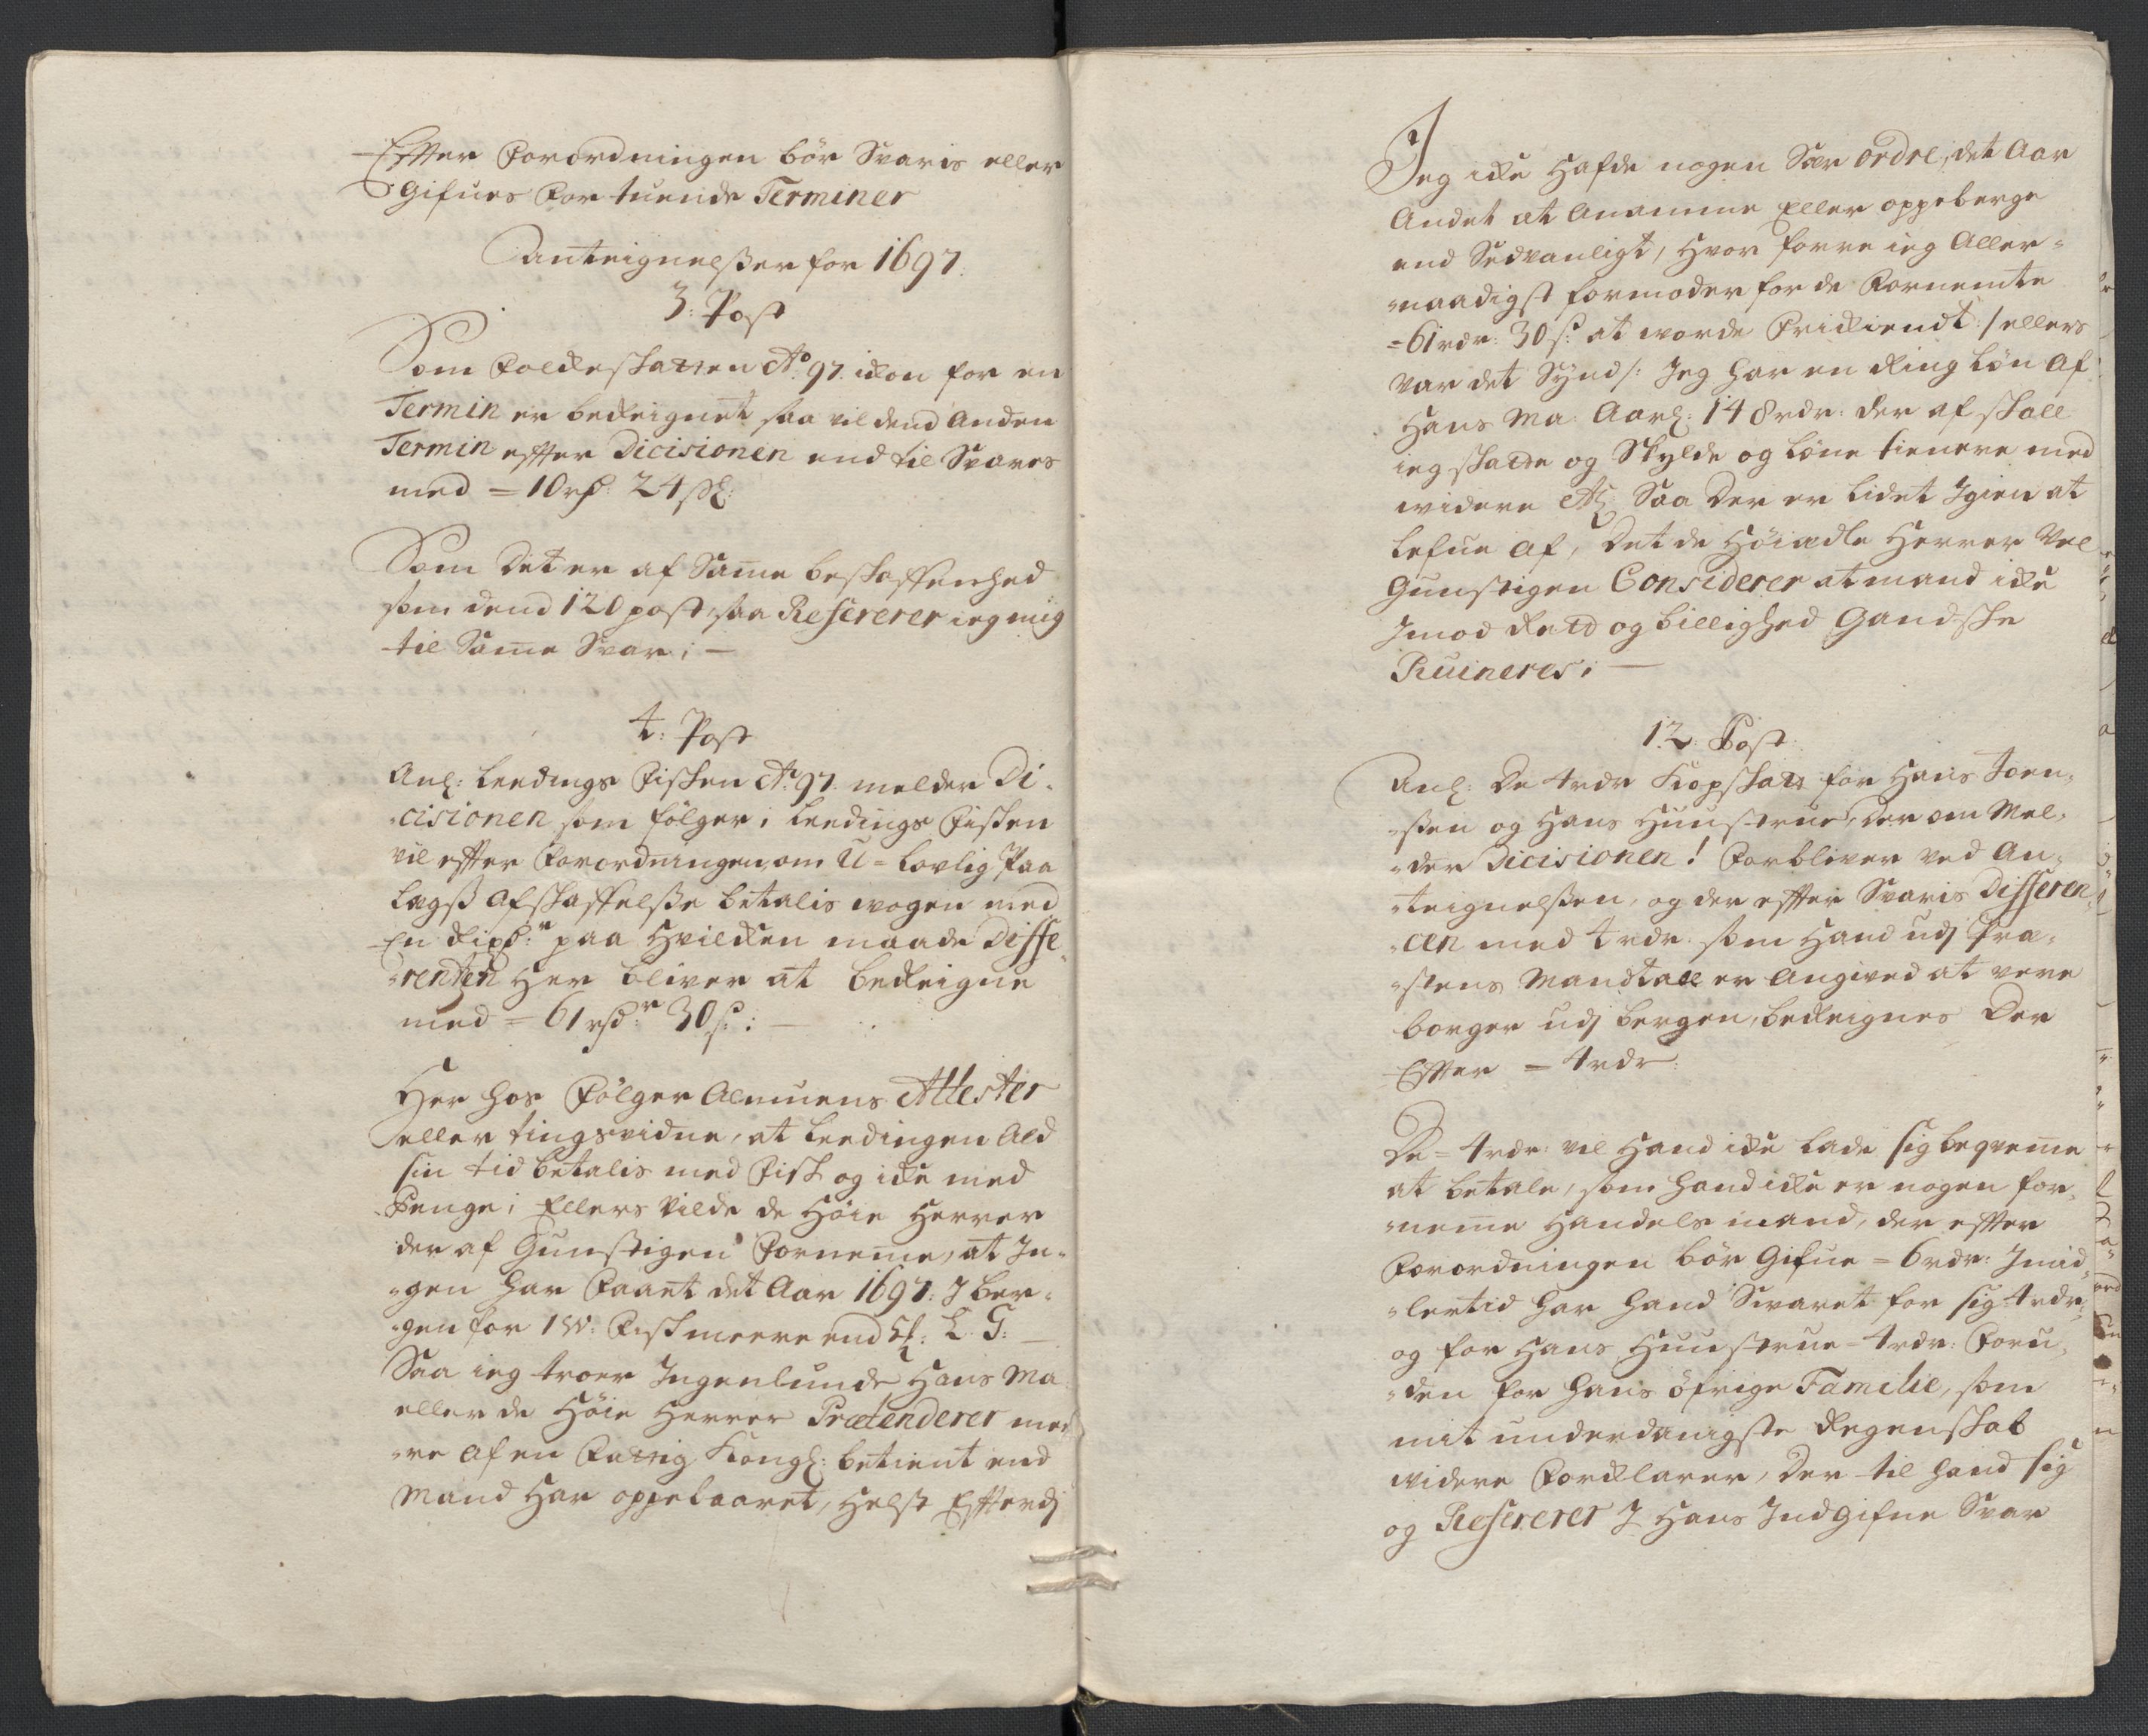 Efter Forordningen bör Svaris eller
Gifues for tuende Terminer
Anteignelßer for 1697.
3: Post
Som Folcheskatten Ao. 97. ickon for en
Termin er bereignet saa vil dend Anden
Termin effter Dicisionen end til Svares
med = 10 rd: 24 sk:
Som Det er af Same beskaffenhed
som dend 120 post, saa Refererer ieg mig
til Same Svar; —
4: Post
Anl: Leedings Fisken Ao. 97. melder Di-
-cisionen som fölger; Leedings Fisken
vil effter Forordningen om U-lovlig Paa
Lagß Afskaffelße betalis wogen med
En Rixd:r paa Hvilcken maade Diffe-
-rentzen Her bliver at bereigne
med = 61 rd:r 30 s: —
Her hos Fölger Almuens Attester
eller tingsvidne, at Leedingen Ald
sin tid betalis med Fisk og icke med
Penge; Ellers Vilde de Höie Herrer
der af Gunstigen Forneme, at In-
-gen har Faaet det Aar 1697: J Ber-
-gen for 1 W: Fisk meere end
Saa ieg troer Ingenlunde Hans Ma
eller de Höie Herrer Prætenderer mee
-re Af en Fattig Kongl: betient end
Mand Har oppebaaret, Helst Efterdj
Jeg icke Hafde nogen Sær ordre, det Aar
Andet at Anamme Eller oppeberge
end Sedvanligt, Hvor forre ieg Aller-
-naadigst formoder for de Fornemte
= 61 rdr: 30 s: at worde Frikiendt /: ellers
var det Synd :/ Jeg har en Ring Lön Af
Hans Ma: Aarl: 148 rdr: der af skall
ieg skatte og Skylde og Löne tienere med
widere Saa Der er Lidet Igien at
Lefue Af, Det de Höiædle Herrer Vel
Gunstigen Considerer at mand icke
Imod Rætt og billighed Gandske
Ruineres; —
12. Post.
Anl: De 4 rdr Kopskatt for Hans Joen-
-ßen og Hans Huustrue, Der om Mel-
-der Dicisionen! Forbliver ved An-
-teignelßen, og der effter Svaris Differen-
-cen med 4 rdr: som Hand udj Præ-
-stens Mandtall er Angived at vere
borger udj Bergen, bereignes Der
Effter = 4 rdr
De = 4 rdr: vil Hand icke Lade sig beqveme
at betale, som Hand icke er nogen for-
-neme Handels mand, der effter
Forordningen bör Gifue = 6 rdr: Imid-
-lertid har Hand Swaret for sig 4 rdr:
og for Hans Huustrue = 4 rdr: Foru-
-den for hans öfrige Familie, som
mit underdanigste Regenskab
widere Forklarer, Der til Hand sig
og Refererer J Hans Indgifne Svar